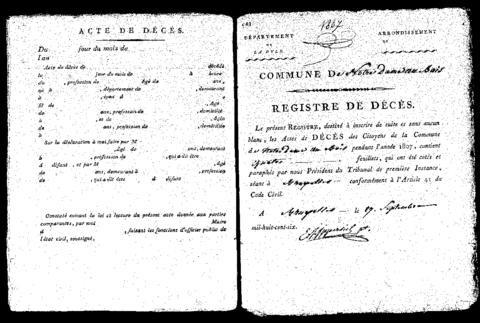 ACTE DE DÉCÈS.
Du jour du mois de
l'an
Acte de décès de décédé
le jour du mois de à heure
du , profession de âgé de ans,
né à , département de , demeurant
à
fil de , Agé
de ans, profession de , domicilié
à
, Agé
de ans, profession de , domicilié
à
Sur la déclaration à moi faite par M
ans, demeurant
à , profession de , qui a dit être
à défunt , et par M , Agé
de ans, demeurant à
profession de , qui a dit être à défunt
Constaté suivant la loi et lecture du présent acte donnée aux parties
comparantes, par moi Maire
d , faisant les fonctions d'officier public de
l'état civil, soussigné,
1807
DÉPARTEMENT
DE
LA DYLE.
ARRONDISSEMENT
DE
COMMUNE De Notre dame au Bois
REGISTRE DE DÉCÈS.
Le présent REGISTRE, destiné à inscrire de suite et sans aucun
blanc, les Actes de DÉCÈS des Citoyens de la Commune
de Notre dame au Bois pendant l'année 1807, contient
quatre feuillets, qui ont été cotés et
paraphés par nous Président du Tribunal de première Instance,
séant à Bruxelles conformément à l'Article 41 du
Code Civil.
A Bruxelles le 19 Septembre
mil-huit-cent-six.